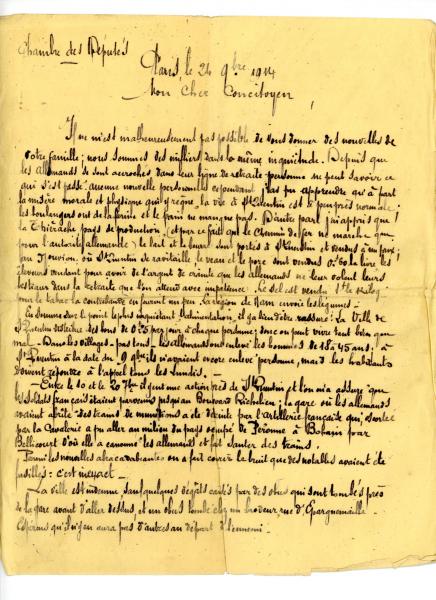 Chambre des Députés
Paris, le 24 9bre 1914
Mon Cher Concitoyen,
Il ne m'est malheureusement pas possible de vous donner des nouvelles de
votre famille; nous sommes des milliers dans la même inquiétude. Depuis que
les allemands se sont accrochés dans leur ligne de retraite personne ne peut savoir ce
qui s'est passé: aucune nouvelle personnelle cependant j'ai pu apprendre qu'à part
la misère morale et physique qui y règne, la vie à St Quentin est à peu près normale:
les boulangers ont de la farine et le pain ne manque pas. D'autre part j'ai appris que
la Thiérache pays de production (et par ce fait que le Chemin de fer ne marche que
pour l'autorité allemande) le lait et le beurre sont portés à St Quentin et vendus à
par où St Quentin se ravitaille le veau et le porc sont vendus 0.60 la livre les
éleveurs vendant pour avoir de l'argent de crainte que les allemands ne leur volent leurs
bestiaux dans la retraite que l'on attend avec impatience. Le sel est vendu 1f le kilog
par le tabac la contrebande en fournit un peu. La région de Ham envoie les légumes -
En somme sur le point le plus inquiétant l'alimentation, il y a lieu d'être rassuré: La Ville de
St Quentin distribue des bons de 0f.75 par jour à chaque personne; donc on peut vivre tant bien que
mal - Dans les villages - pas tous, les allemands ont enlevé les hommes de 18 à 45 ans: à
St Quentin à la date du 9 9bre ils n'avaient encore enlevé personne, mais les habitants
doivent répondre à l'appel tous les lundis. -
- Entre le 10 et le 20 9bre il y eut une action près de St Quentin et l'on m'a assuré que
les soldats français étaient parvenus jusqu'au Boulevard Richelieu; la gare où les allemands
avaient abrité des trains de munitions a été détruite par l'artillerie française qui, escortée
par la Cavalerie a pu aller au milieu du pays occupé de Péronne à Bohain par
Bellicourt d'où elle a canonné les allemands et fait sauter des trains.
Parmi les nouvelles abracadabrantes on a fait courir le bruit que des notables avaient été
fusillés: c'est inexact -
- La ville est indemne sauf quelques dégâts causés par des obus qui sont tombés près
de la gare avant d'aller dessus et un obus tombé chez un brodeur, rue d'Epargnemaille
Espérons qu'il n'y en aura pas d'autres au départ de l'ennemi -